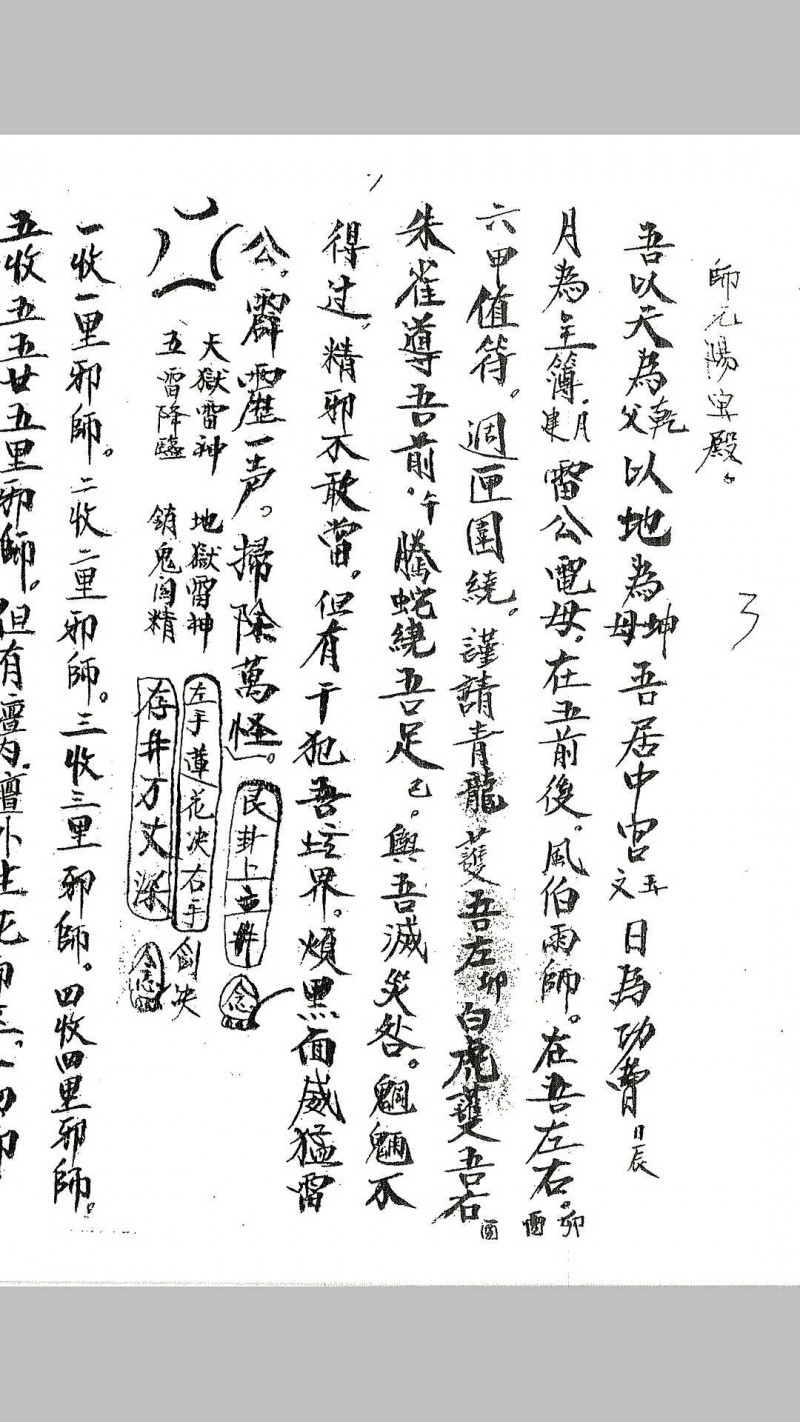 師元陽宝殿。
3
吾以天為父乾以地為母坤吾居中宮玉文日為功曹日辰
月為主簿月建雷公電母。在五前後。風伯雨師。在吾左右。卯酉
六甲值符。週匝圍繞。謹請青龍護吾左卯白虎護吾右酉
朱雀導吾前。午騰蛇繞吾足己。與吾滅災咎。魍魎不
得过。精邪不敢當。但有干犯吾坛界。煩黑面威猛雷
公。霹靂一声。掃除萬怪。艮卦上面井念
天獄雷神 地獄雷神 左手蓮花决右手劍决
五雷降臨 銷鬼滅精 存井万丈深念
一收一里邪師。二收二里邪師。三收三里邪師。四收四里邪師。
五收五五廿五里邪師。但有壇内壇外生死